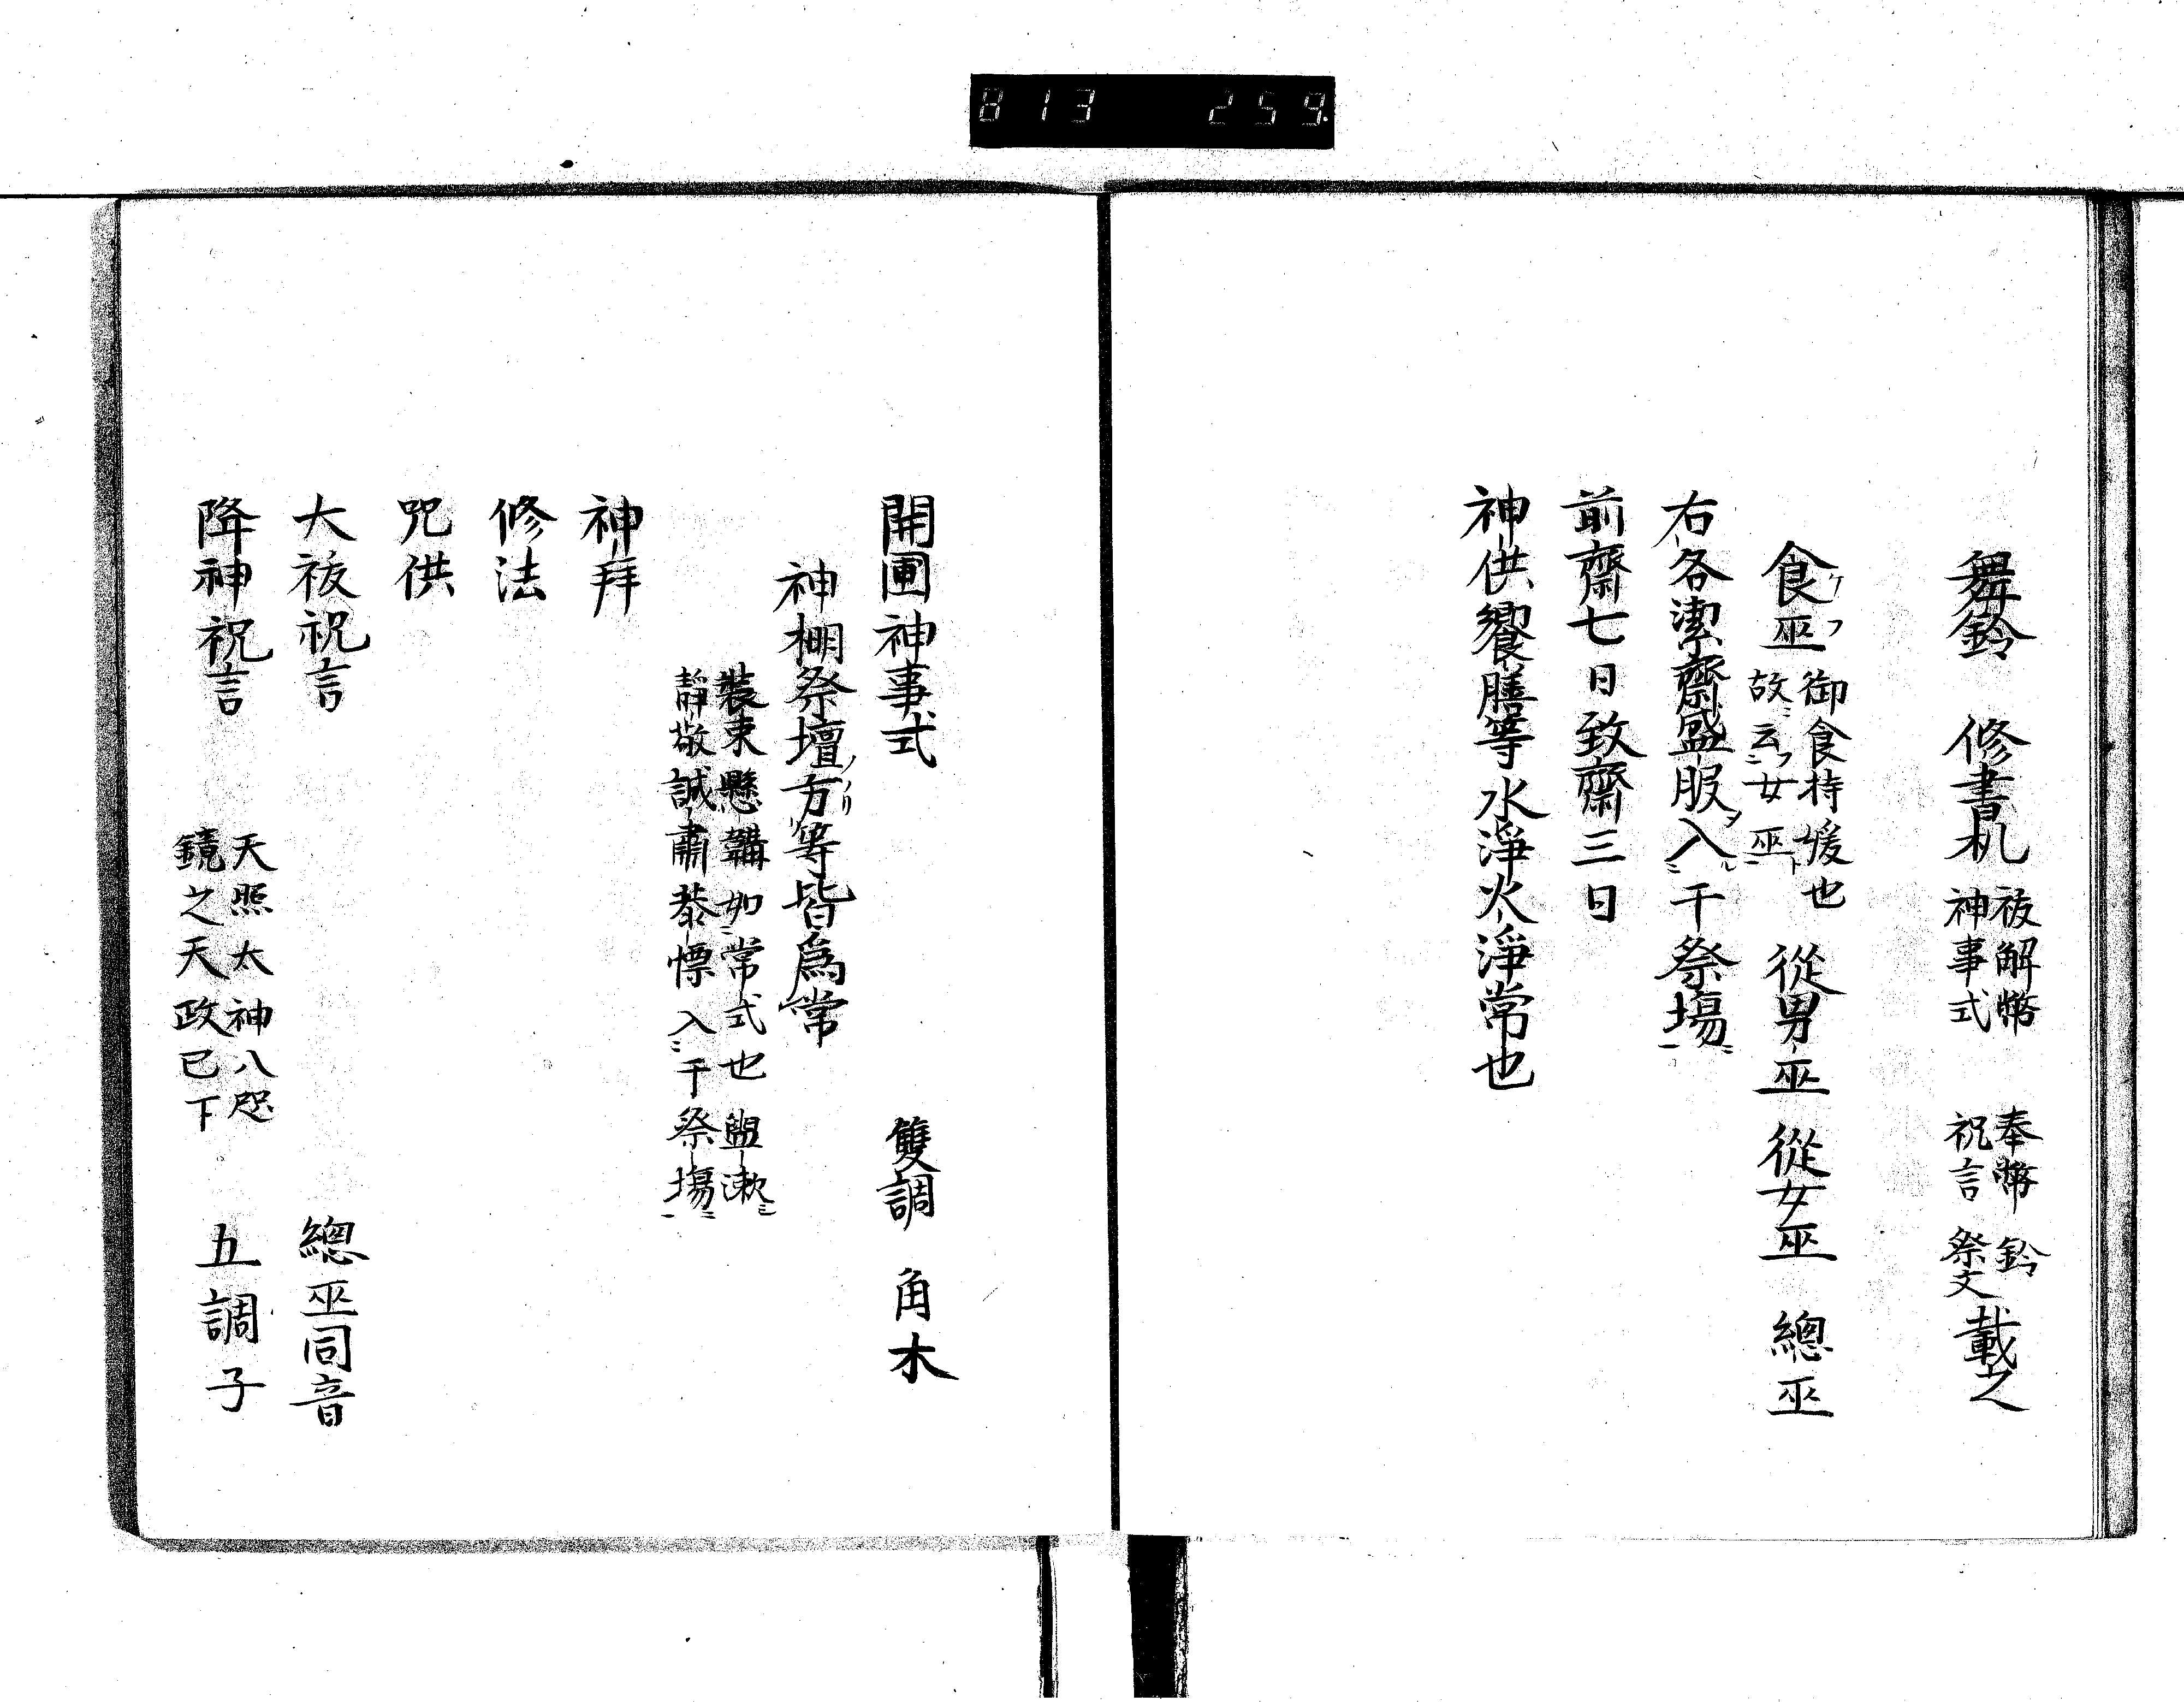 813 259
舞鈴 修書札 祓解幣 神事式 奉幣鈴 祝言祭文 載之
食巫 御食持媛也 故云女巫 從男巫 從女巫 總巫
右各潔齋盛服入于祭場
前齋七日致齋三日
神供饗膳等水淨火淨常也
開圃神事式 雙調 角木
神棚祭壇方等皆爲常
裝束懸鬘如常式也盥漱
靜敬誠肅恭慓入于祭場
神拜
修法
咒供
大祓祝言 總巫同音
降神祝言 天照太神八咫 鏡之天政已下 五調子